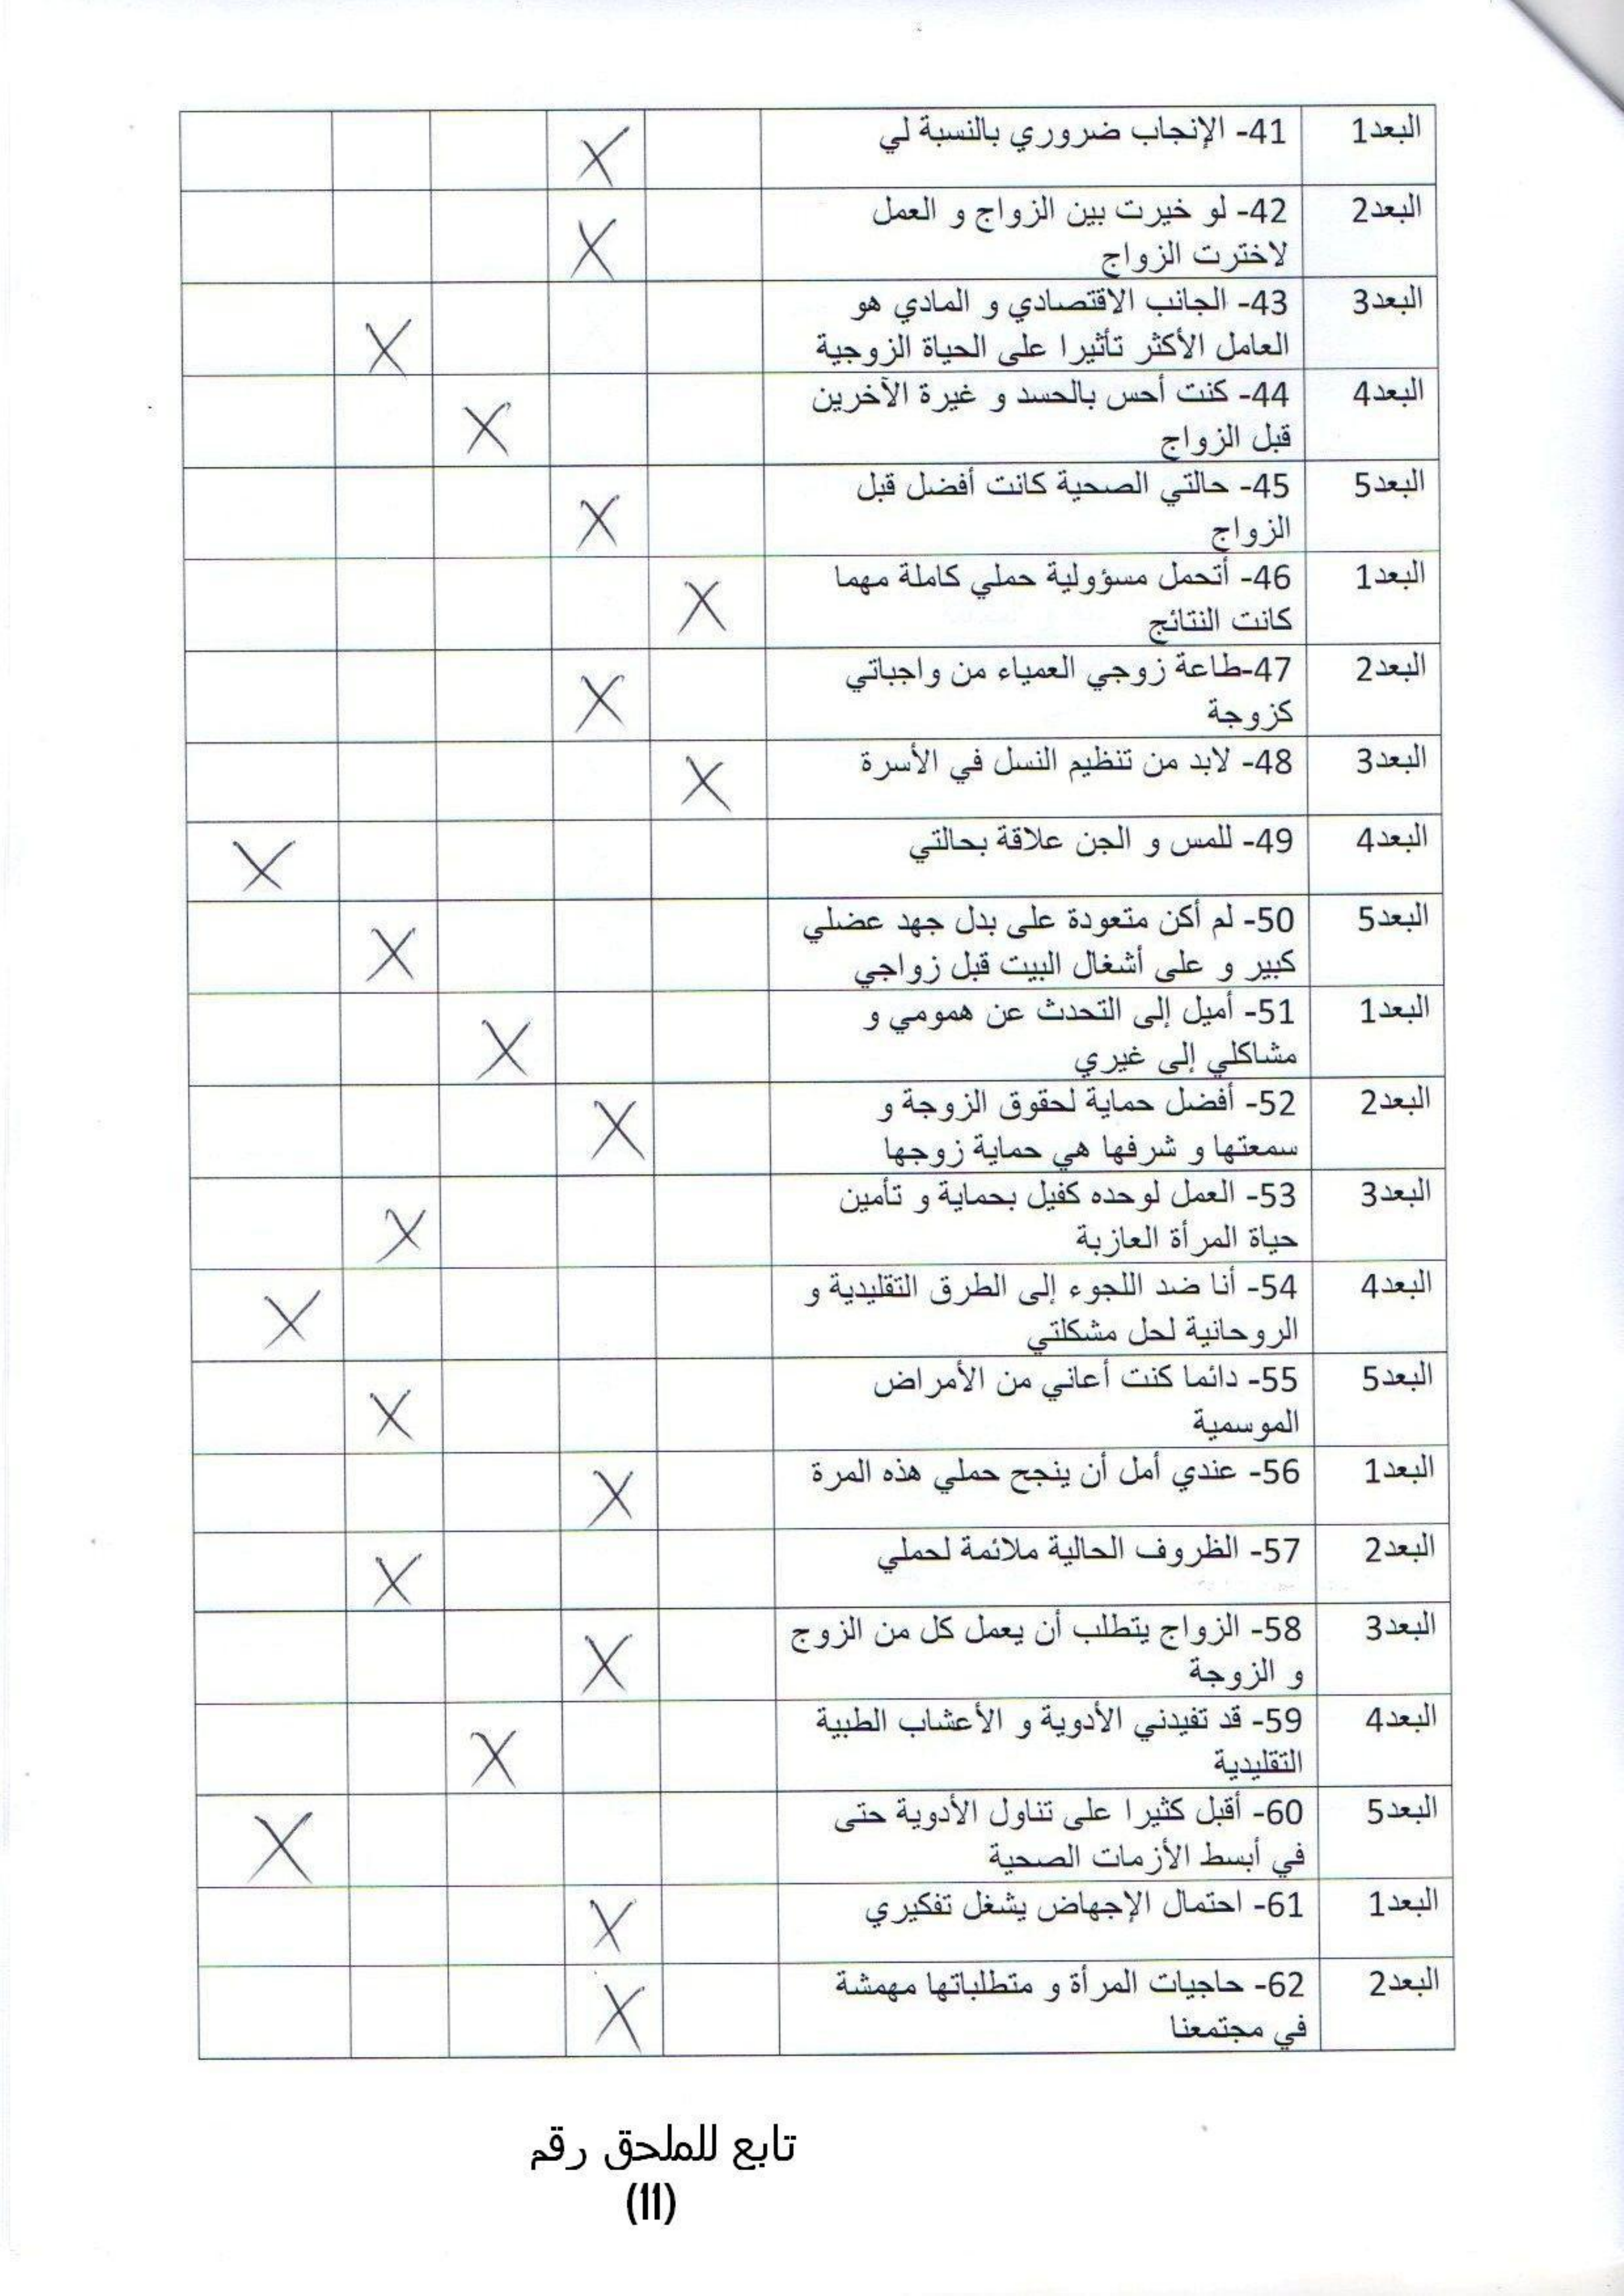 البعد1 41- الإنجاب ضروري بالنسبة لي X
البعد2 42- لو خيرت بين الزواج و العمل
لاخترت الزواج X
البعد3 43- الجانب الاقتصادي و المادي هو
العامل الأكثر تأثيرا على الحياة الزوجية X
البعد4 44- كنت أحس بالحسد و غيرة الآخرين
قبل الزواج X
البعد5 45- حالتي الصحية كانت أفضل قبل
الزواج X
البعد1 46- أتحمل مسؤولية حملي كاملة مهما
كانت النتائج X
البعد2 47-طاعة زوجي العمياء من واجباتي
كزوجة X
البعد3 48- لابد من تنظيم النسل في الأسرة X
البعد4 49- للمس و الجن علاقة بحالتي X
البعد5 50- لم أكن متعودة على بدل جهد عضلي
كبير و على أشغال البيت قبل زواجي X
البعد1 51- أميل إلى التحدث عن همومي و
مشاكلي إلى غيري X
البعد2 52- أفضل حماية لحقوق الزوجة و
سمعتها و شرفها هي حماية زوجها X
البعد3 53- العمل لوحده كفيل بحماية و تأمين
حياة المرأة العازبة X
البعد4 54- أنا ضد اللجوء إلى الطرق التقليدية و
الروحانية لحل مشكلتي X
البعد5 55- دائما كنت أعاني من الأمراض
الموسمية X
البعد1 56- عندي أمل أن ينجح حملي هذه المرة X
البعد2 57- الظروف الحالية ملائمة لحملي X
البعد3 58- الزواج يتطلب أن يعمل كل من الزوج
و الزوجة X
البعد4 59- قد تفيدني الأدوية و الأعشاب الطبية
التقليدية X
البعد5 60- أقبل كثيرا على تناول الأدوية حتى
في أبسط الأزمات الصحية X
البعد1 61- احتمال الإجهاض يشغل تفكيري X
البعد2 62- حاجيات المرأة و متطلباتها مهمشة
في مجتمعنا X
تابع للملحق رقم
(11)